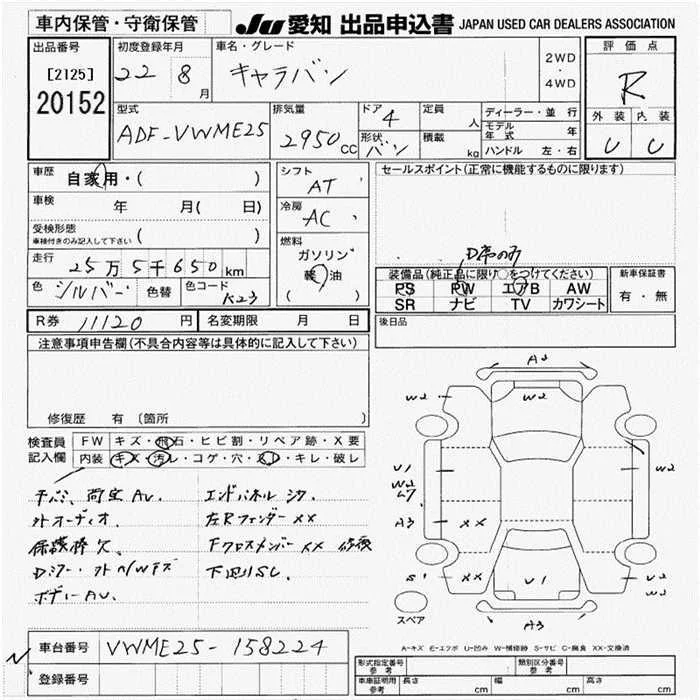 車内保管・守衛保管
JU 愛知 出品申込書 JAPAN USED CAR DEALERS ASSOCIATION
出品番号
[2125]
20152
初度登録年月
22 8 月
車名・グレード
キャラバン
2WD
・
4WD
評価点
R
外装 内装
U U
型式
ADF-VWME25
排気量
2950 cc
ドア 4
形状 バン
定員 人
積載 kg
ディーラー・並行
モデル年式 年
ハンドル 左・右
車歴
自家用・( )
車検 年 月( 日)
受検形態
車検付きのみ記入して下さい ( )
走行
25万5千650km
色 シルバー 色替 色コード K23
シフト
AT
冷房
AC
燃料
ガソリン
軽油
( )
セールスポイント(正常に機能するものに限ります)
D席のみ
装備品(純正品に限り○をつけてください)
PS PW エアB AW
SR ナビ TV カワシート
新車保証書
有・無
後日品
R券 11120 円 名変期限 月 日
注意事項申告欄(不具合内容等は具体的に記入して下さい)
修復歴 有 〔箇所 〕
検査員
記入欄
FW キズ・飛石・ヒビ割・リペア跡・X要
内装 キズ・汚レ・コゲ・穴・スレ・キレ・破レ
外オーディオ
ボディーAU.
エンドパネル
左RフェンダーXX
FクロスメンバーXX 修復
A3
W2 W2
U1 W2
W2
A3 XX
S1 XX U1 U2
A3
スペア
A-キズ E-エクボ U-凹み W-補修跡 S-サビ C-腐食 XX-交換済
車台番号 VWME25-158224
登録番号
形式指定番号
参考
類別区分番号
参考
車庫証明用
参考
長さ cm 幅 cm 高さ cm